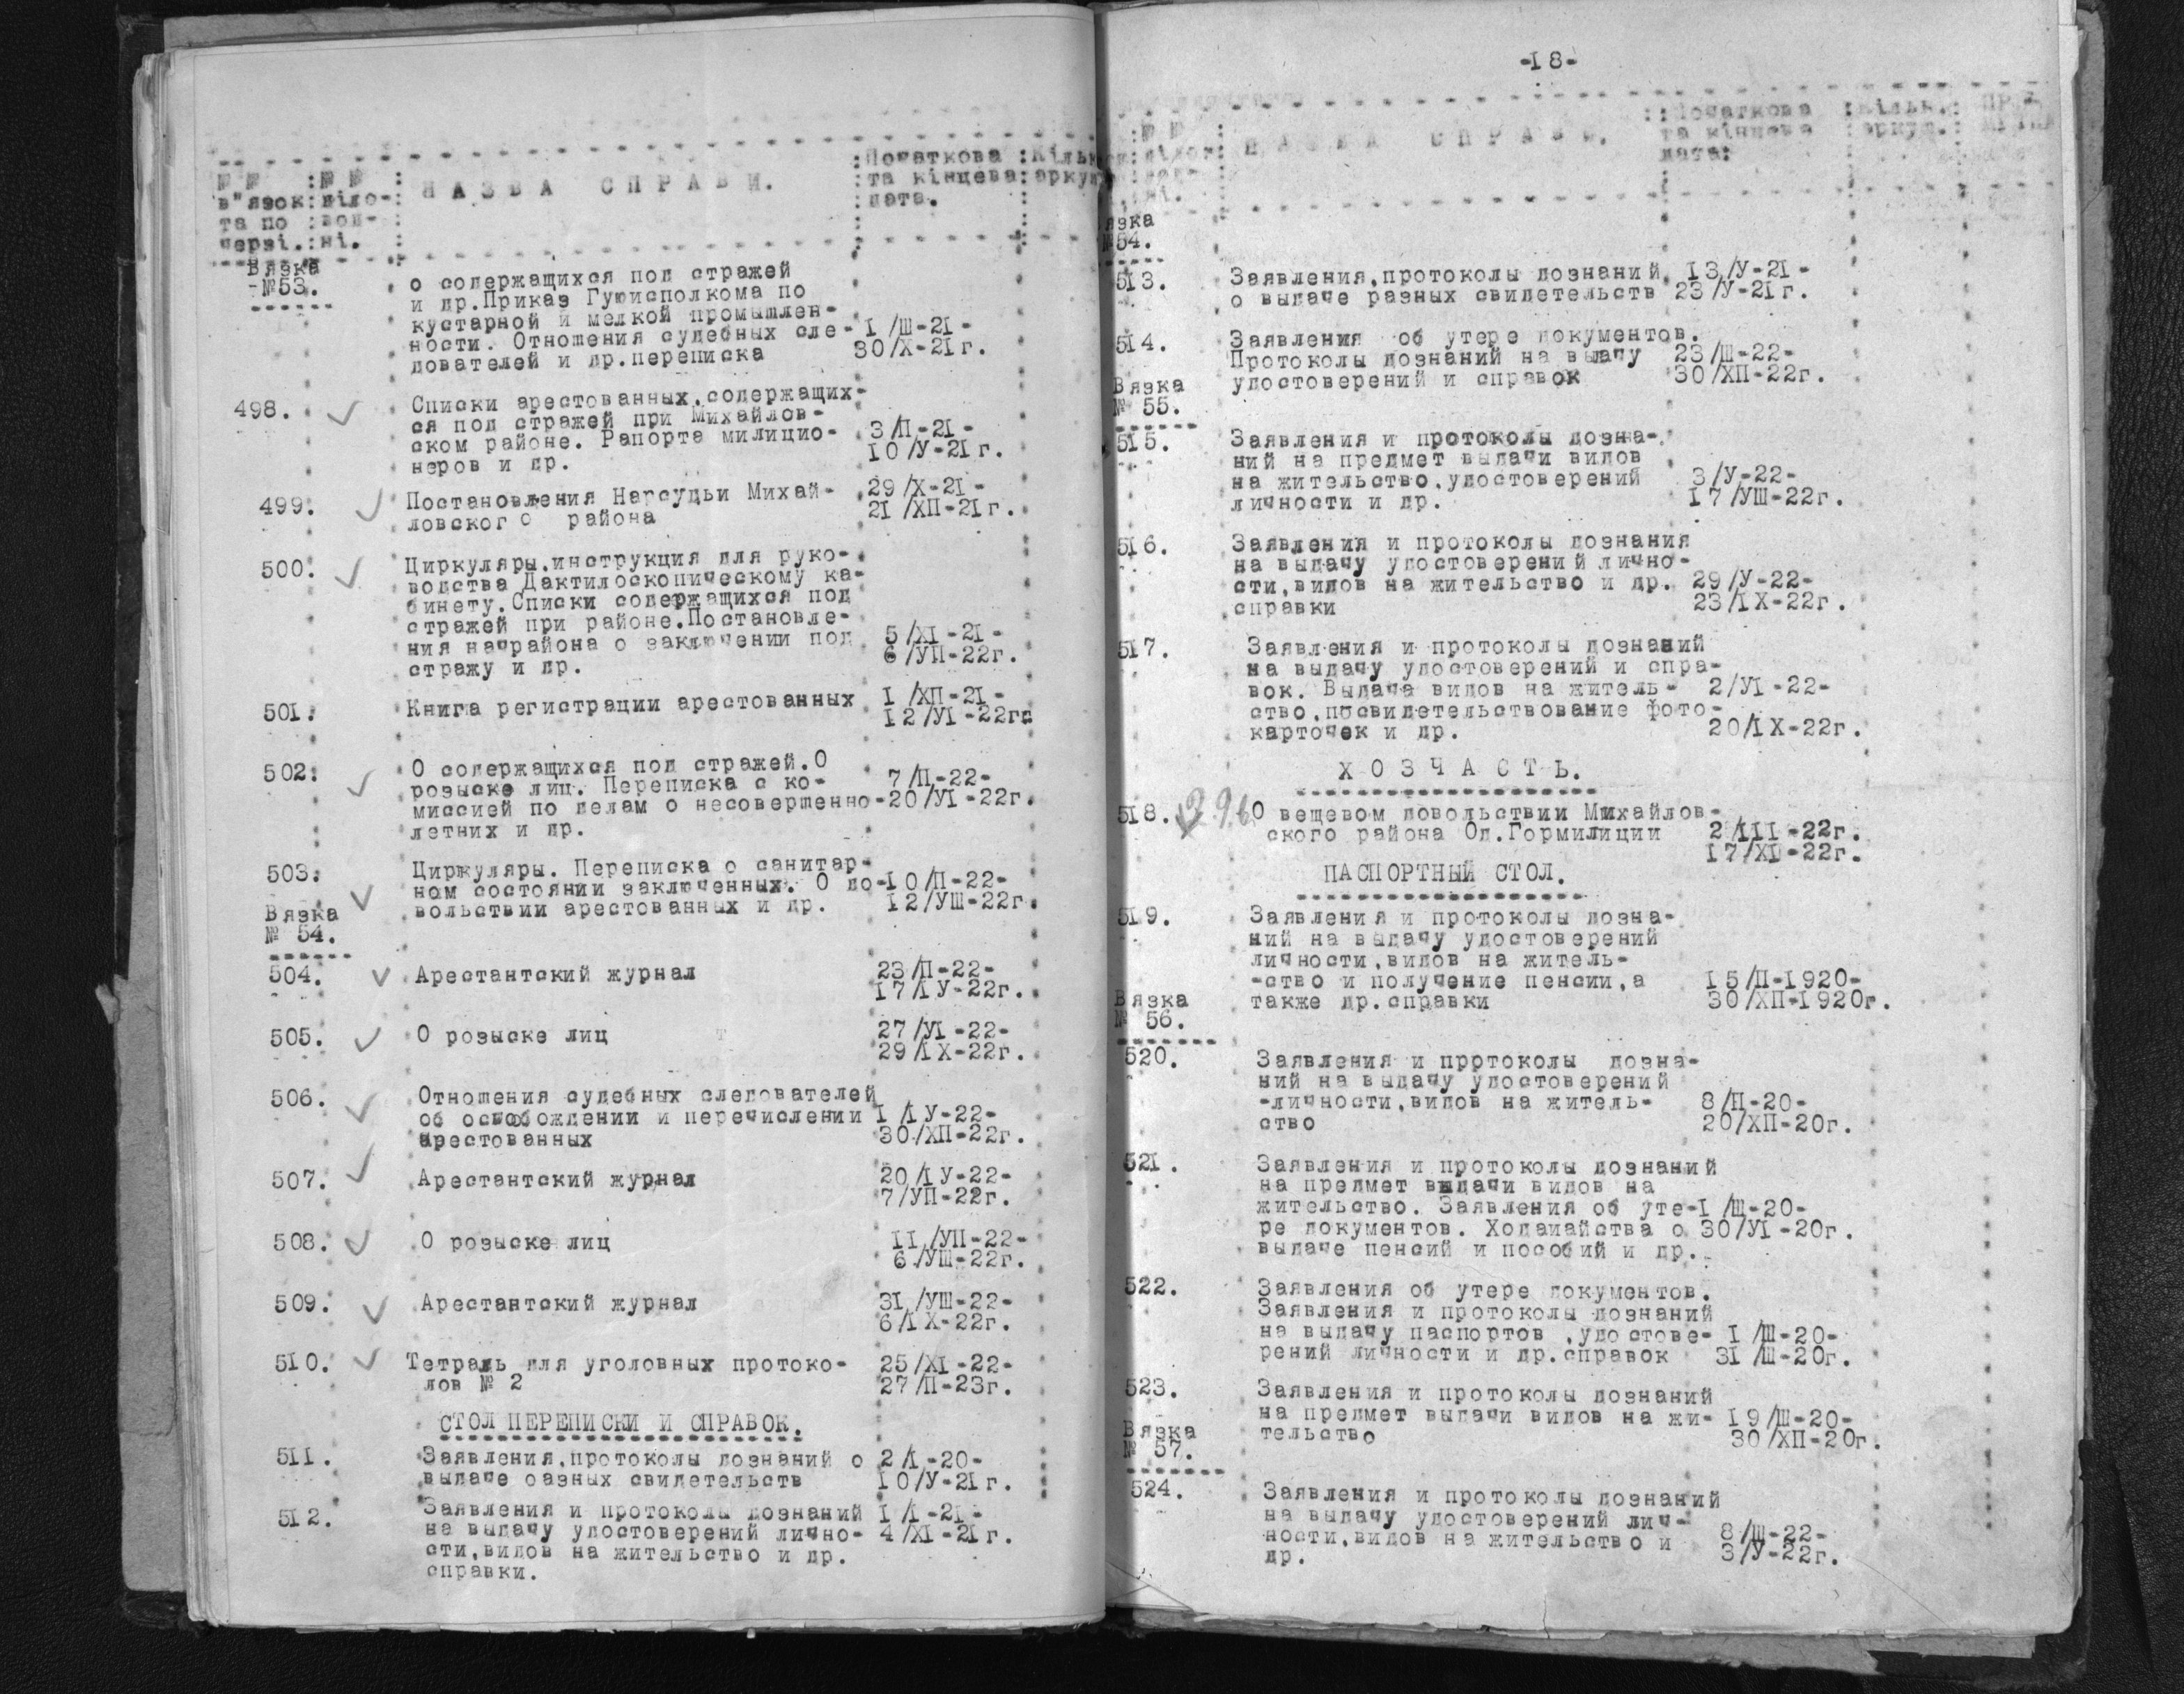 № № :№ № : Н А З В А С П Р А В И. :Початкова :Кільк
в"язок:діло-: та кінцева:аркуш
та по :вод- : дата.
черзі.:ні. :
Вязка
№53.
о содержащихся под стражей
и др.Приказ Губисполкома по
кустарной и мелкой промышлен-
ности. Отношения судебных сле- 1/Ш-21-
дователей и др.переписка 30/Х-21г.
498. Списки арестованных,содержащих-
ся под стражей при Михайлов-
ском районе. Рапорта милицио- 3/П-21-
неров и др. 10/У-21г.
499. Постановления Нарсудьи Михай- 29/Х-21-
ловского района 21/ХП-21г.
500. Циркуляры,инструкция для руко-
водства Дактилоскопическому ка-
бинету.Списки содержащихся под
стражей при районе.Постановле-
ния начрайона о заключении под 5/XI-21-
стражу и др. 6/УП-22г.
501. Книга регистрации арестованных 1/ХП-21-
12/УI-22гг
502. О содержащихся под стражей.О
розыске лиц. Переписка с ко- 7/П-22-
миссией по делам о несовершенно-20/УI-22г.
летних и др.
503. Циркуляры. Переписка о санитар-
ном состоянии заключенных. О до-10/П-22-
вольствии арестованных и др. 12/УШ-22г.
Вязка
№ 54.
504. Арестантский журнал 23/П-22-
17/IУ-22г.
505. О розыске лиц 27/УI-22-
29/IX-22г.
506. Отношения судебных следователей
об освобождении и перечислении 1/IУ-22-
арестованных 30/ХП-22г.
507. Арестантский журнал 20/IУ-22-
7/УП-22г.
508. О розыске лиц 11/УП-22-
6/УШ-22г.
509. Арестантский журнал 31/УШ-22-
6/IX-22г.
510. Тетрадь для уголовных протоко- 25/XI-22-
лов № 2 27/П-23г.
СТОЛ ПЕРЕПИСКИ И СПРАВОК.
511. Заявления,протоколы дознаний о 2/I-20-
выдаче оазных свидетельств 10/У-21г.
512. Заявления и протоколы дознаний 1/I-21-
на выдачу удостоверений лично- 4/XI-21г.
сти,видов на жительство и др.
справки.
-18-
№ № Н А З В А С П Р А В И. :Початкова :кільк.:
та кінцева :аркуш.:
дата:
язка
№54.
513. Заявления,протоколы дознаний 13/У-21-
о выдаче разных свидетельств 23/У-21г.
514. Заявления об утере документов.
Протоколы дознаний на выдачу 23/Ш-22-
удостоверений и справок 30/ХП-22г.
Вязка
№ 55.
515. Заявления и протоколы дозна-
ний на предмет выдачи видов
на жительство,удостоверений 3/У-22-
личности и др. 17/УШ-22г.
516. Заявления и протоколы дознания
на выдачу удостоверений лично-
сти,видов на жительство и др. 29/У-22-
справки 23/IX-22г.
517. Заявления и протоколы дознаний
на выдачу удостоверений и спра-
вок. Выдача видов на житель- 2/УI-22-
ство,посвидетельствование фото-
карточек и др. 20/IX-22г.
Х О З Ч А С Т Ь.
518. О вещевом довольствии Михайлов-
ского района Од.Гормилиции 2/III-22г.
17/ХП-22г.
ПАСПОРТНЫЙ СТОЛ.
519. Заявления и протоколы дозна-
ний на выдачу удостоверений
личности,видов на житель-
-ство и получение пенсии,а 15/П-1920-
также др.справки 30/ХП-1920г.
Вязка
№ 56.
520. Заявления и протоколы дозна-
ний на выдачу удостоверений
-личности,видов на житель- 8/П-20-
ство 20/ХП-20г.
521. Заявления и протоколы дознаний
на предмет выдачи видов на
жительство. Заявления об уте-1/Ш-20-
ре документов. Ходатайства о 30/УI-20г.
выдаче пенсий и пособий и др.
522. Заявления об утере документов.
Заявления и протоколы дознаний
на выдачу паспортов ,удостове- 1/Ш-20-
рений личности и др.справок 31/Ш-20г.
523. Заявления и протоколы дознаний
на предмет выдачи видов на жи- 19/Ш-20-
тельство 30/ХП-20г.
Вязка
№ 57.
524. Заявления и протоколы дознаний
на выдачу удостоверений лич-
ности,видов на жительство и 8/Ш-22-
др. 3/У-22г.